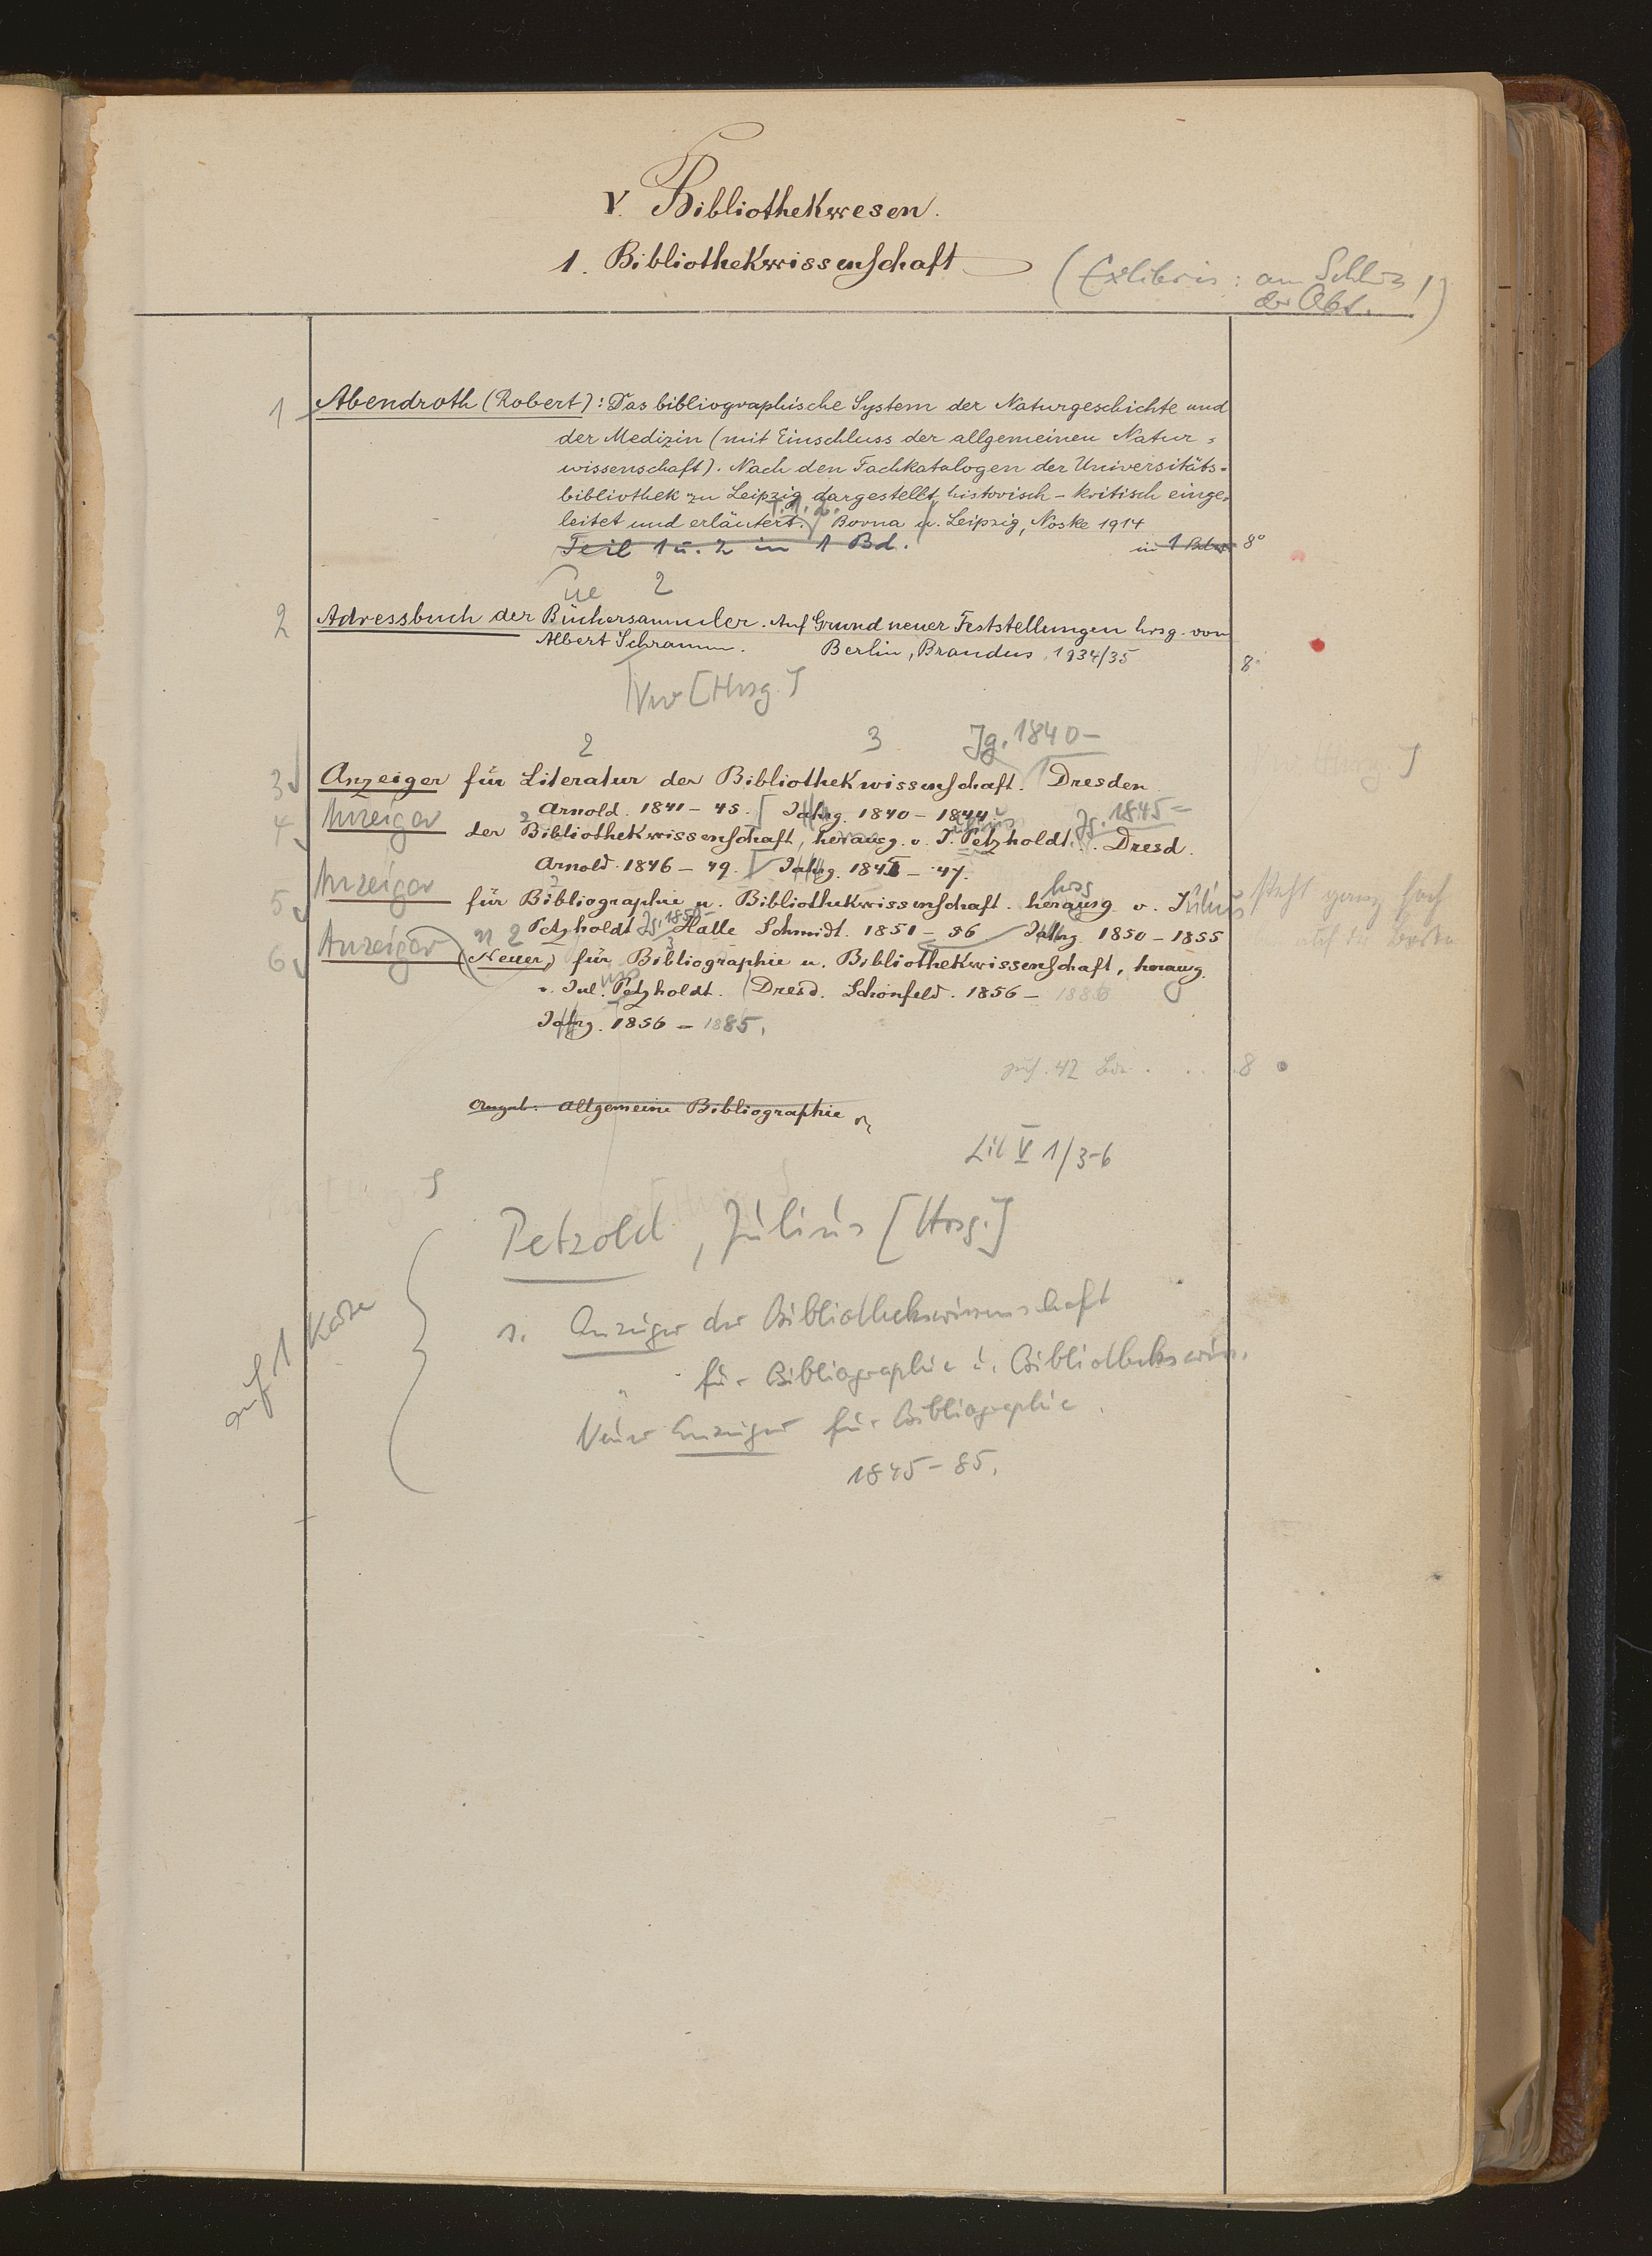 V. Bibliothekwesen.
1. Bibliothekwissenschaft
(Exlibris: am Schluss
der Abt.!)
1 Abendroth (Robert): Das bibliographische System der Naturgeschichte und
der Medizin (mit Einschluss der allgemeinen Natur-
wissenschaft). Nach den Fachkatalogen der Universitäts-
bibliothek zu Leipzig dargestellt, historisch-kritisch einge-
T. 1. 2.
leitet und erläutert. Borna u. Leipzig, Noske 1914
Teil 1 u. 2 in 1 Bd. in 1 Bde 8°
ue 2
2 Adressbuch der Büchersammler. Auf Grund neuer Feststellungen hrsg. von
Albert Schramm. Berlin, Brandus, 1934/35 8°
Vw [Hrsg.]
2 3 Jg. 1840-
3 Anzeiger für Literatur der Bibliothekwissenschaft. Dresden
Arnold. 1841-45. [Jahrg. 1840-1844
4 Anzeiger der Bibliothekwissenschaft, herausg. v. J. Petzholdt. Jg. 1845- Dresd.
Arnold. 1846-49. Jahrg. 1845-47.
5 Anzeiger für Bibliographie u. Bibliothekwissenschaft. herausg. hrsg v. Julius
Petzholdt Jg. 1850- Halle Schmidt. 1851-56 Jahrg. 1850-1855
steht ganz hoch
6 Anzeiger (Neuer) für Bibliographie u. Bibliothekwissenschaft, herausg.
v. Jul. Petzholdt. Dresd. Schönfeld. 1856-1886
Jahrg. 1856-1885.
42 8
Allgemeine Bibliographie
Lit V 1/3-6
Petzold, Julius [Hrsg.]
auf 1 Karte
s. Anzeiger der Bibliothekswissenschaft
" für Bibliographie u. Bibliothekswiss.
Neuer Anzeiger für Bibliographie.
1845-85.